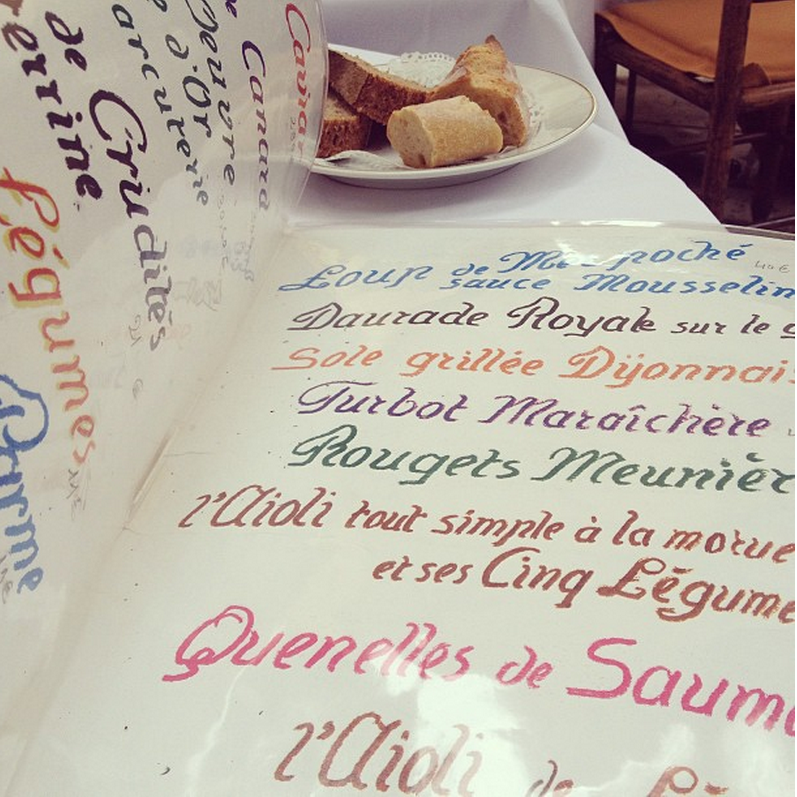 Caviar
Canard
de Crudités
errine
Légumes
Parme
Loup de Mer poché 40€
sauce Mousselin
Daurade Royale sur le g
Sole grillée Dijonnais
Turbot Maraîchère
Rougets Meunièr
l'Aïoli tout simple à la morue
et ses Cinq Légume
Quenelles de Saumo
l'Aïoli de Lé